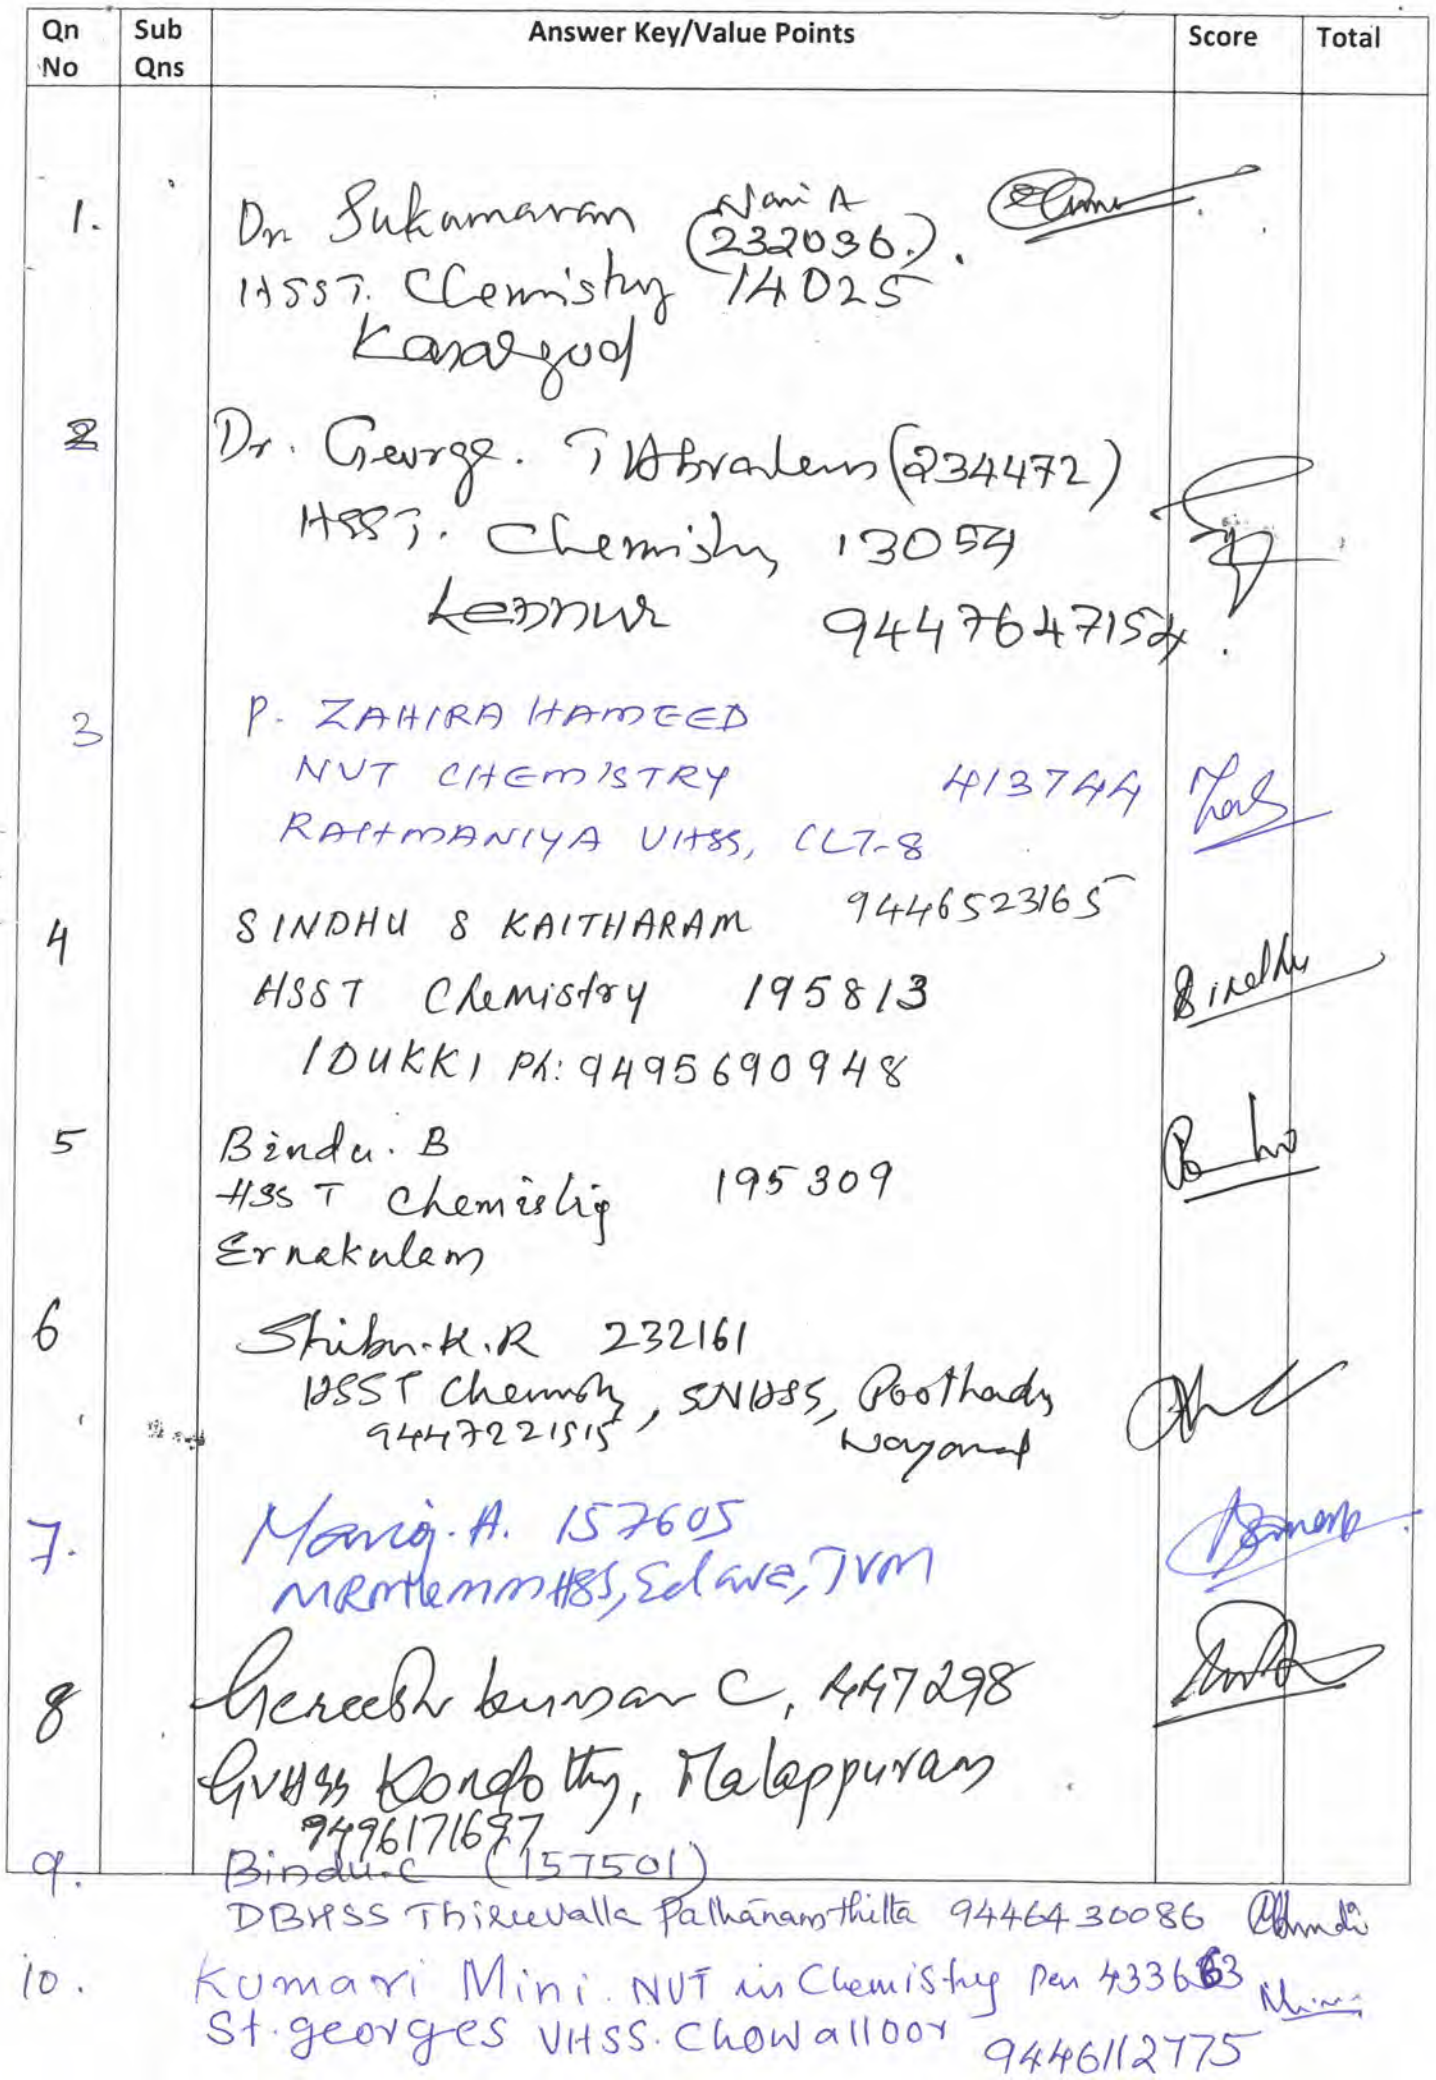 Qn No Sub Qns Answer Key/Value Points Score Total
1. Dr Sukumaran Nani A (232036.).
HSST. Chemistry 14025
Kasargod
2 Dr. George. T Abraham (234472)
HSST. Chemistry 13054
Kannur 9447647154
3 P. ZAHIRA HAMEED
NVT CHEMISTRY 413744
RAHMANIYA VHSS, CLT-8
9446523165
4 SINDHU S KAITHARAM
HSST Chemistry 195813 Sindhu
IDUKKI Ph: 9495690948
5 Bindu. B
HSST Chemistry 195309
Ernakulam
6 Shibu. K. R 232161
HSST Chemistry, SNHSS, Poothady
9447221515 Wayanad
7. Maria. A. 157605
HSS, Edava, TVM
8 Gireesh kumar C, 447298
GVHSS Kondotty, Malappuram
9496171697
9. Bindu.C (157501)
DBHSS Thiruvalla Pathanamthitta 9446430086
10. Kumari Mini. NVT in Chemistry Pen 433663 Mini
St. georges VHSS. Chowalloor 9446112775